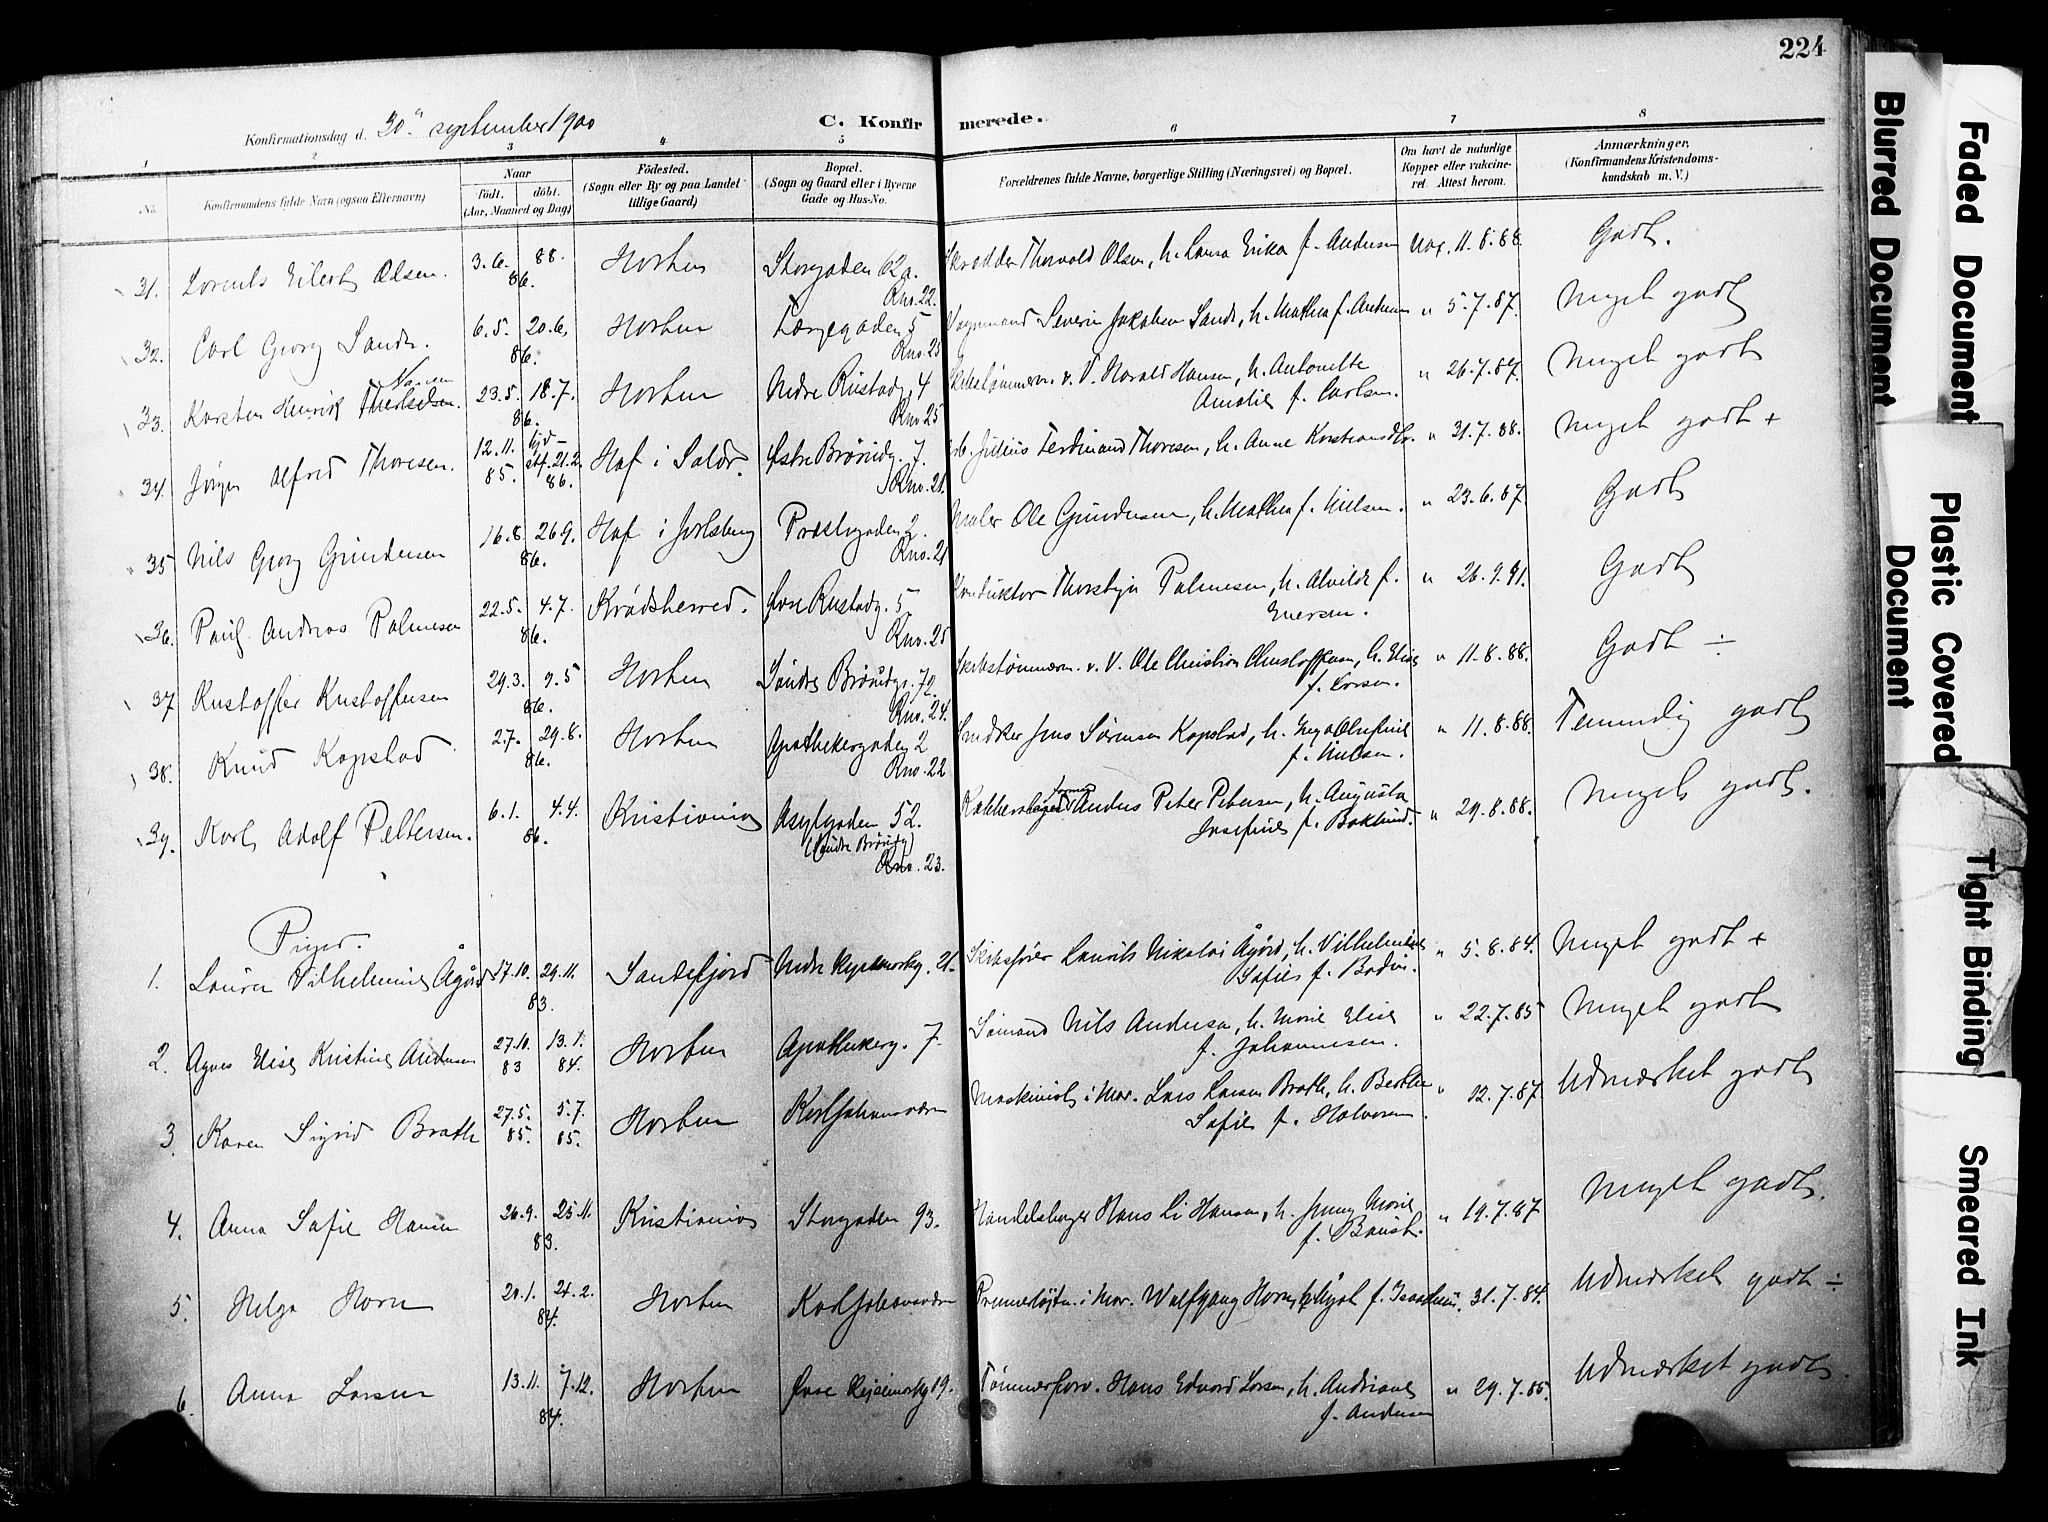 224
Konfirmationsdag d. 30te september 1900
C. Konfirmerede.
1 2 3 4 5 6 7 8
No.
Konfirmandens fulde Navn (ogsaa Efternavn)
Naar
født. døbt.
(Aar, Maaned og Dag)
Fødested.
(Sogn eller By og paa Landet
tillige Gaard)
Bopæl.
(Sogn og Gaard eller i Byerne
Gade og Hus-No.
Forældrenes fulde Navne, borgerlige Stilling (Næringsvei) og Bopæl.
Om havt de naturlige
Kopper eller vakcine-
ret. Attest herom.
Anmærkninger,
(Konfirmandens Kristendoms-
kundskab m. V.)
31. Lorents Eilert Olsen. 3.6. 88. 86. Horten Storgaden 62a. Rno. 22. Skrædder Thorvald Olsen, h. Laura Erika f. Andersen vac. 11.8.88. Godt.
32. Carl Georg Sande. 6.5. 20.6. 86. Horten Færgegaden 5 Rno. 25 Vognmand Severin Jakobsen Sande, h. Mathea f. Andersen " 5.7.87. Meget godt
33. Karsten Henrik Hansen 23.5. 18.7. 86. Horten Nedre Rustadg. 4 Rno. 25 Skibstømmerm. v. V. Harald Hansen, h. Antonette Amalie f. Carlsen. " 26.7.87. Meget godt
34. Jørgen Alfred Thoresen. 12.11. 85. hjd- stf. 21.2. 86. Hof i Solør. Østre Brårudg. 7. Rno. 21. Julius Ferdinand Thoresen, h. Anne Kristiansdtr. " 31.7.88. Meget godt +
35 Nils Georg Gundersen 16.8. 26.9. 86. Hof i Jarlsberg Prestegaden 2. Rno. 21 Maler Ole Gundersen, h. Mathea f. Nielsen. " 23.6.87 Godt
36. Paul Andreas Palmesen 22.5. 4.7. 86. Krødsherred. Øvre Rustadg. 5. Rno. 25 Konduktør Thorstein Palmesen, h. Alvilde f. Iversen. " 26.9.91. Godt
37 Kristoffer Kristoffersen 29.3. 9.5 86. Horten Søndre Brårudg. 72. Rno. 24. Skibstømmerm. v. V. Ole Christian Christoffersen, h. Elise f. Larsen. " 11.8.88. Godt ÷
38. Knud Kopstad 2.7. 29.8. 86. Horten Apothekergaden 2 Rno. 22 Snedker Jens Sørensen Kopstad, h. Inga Olufine f. Nielsen. " 11.8.88. Temmelig godt
39. Karl Adolf Pettersen. 6.1. 4.4. 86. Kristiania Asylgaden 52. (Søndre Brårudg) Rno. 23. Kobberslager Anders Peter Petersen, h. Augusta Josefine f. Boklund. " 29.8.88. Meget godt.
Piger.
1. Laura Vilhelmine Ågård 17.10. 29.11. 83. Sandefjord Nedre Keisemarkg. 21. Skibsfører Laurits Nikolai Ågård, h. Vilhelmine Sofie f. Bodin. " 5.8.84. Meget godt +
2. Agnes Elise Kristine Andersen 27.10. 83 13.1. 84. Horten Apothekerg. 7. Sømand Nils Andersen, h. Marie Elise f. Johannesen. " 22.7.85 Meget godt
3. Karen Sigrid Bratli 27.5. 85. 5.7. 85. Horten Karljohansværn Maskinist i Mar. Lars Larsen Bratli, h. Berthe Sofie f. Halvorsen " 12.7.87. Udmærket godt
4. Anna Sofie Hansen 26.9. 25.11. 83. Kristiania Storgaden 93. Handelsborger Hans Li Hansen, h. Jenny Marie f. Baust. " 19.7.87. Meget godt.
5. Helga Horn 20.1. 24.2. 84. Horten Karljohansværn Premierløjtn. i Mar. Wolfgang Horn, h. f. Isaachsen. 31.7.84. Udmærket godt ÷
6. Anna Larsen 13.11. 7.12. 84. Horten Øvre Keisemarkg 19. Tømmerforv. Hans Edvard Larsen, h. Andriane f. Andersen " 29.7.85. Udmærket godt.
Faded Document
Blurred Document
Plastic Covered Document
Tight Binding
Smeared Ink